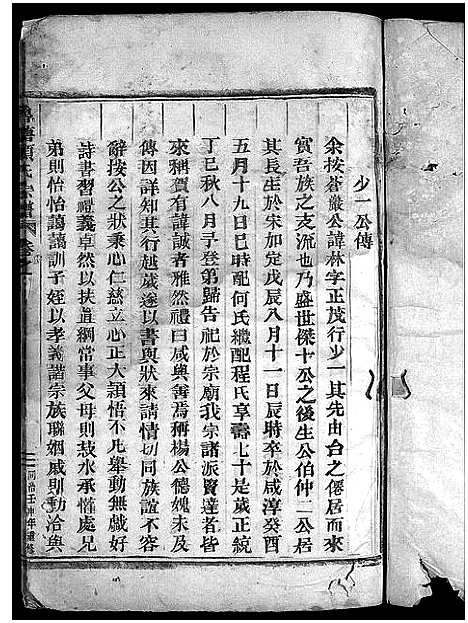 少一公傳
余按蒼嚴公諱林字正茂行少一其先由台之僊居而來
實吾族之支流也乃盛世傑十公之後生公伯仲二公居
其長生於宋加定戊辰八月十一日辰時卒於咸淳癸酉
五月十九日巳時配何氏繼配程氏享壽七十是歲正統
丁巳秋八月予登第歸告祀於宗廟我宗諸派賢達者皆
來稱賀有諱誠者雅然前揖余曰咸與善焉稱楊公德媿未及
傳因詳知其行越歲遂以書與狀來請情切同族誼不容
辭按公之狀秉心仁慈立心正大頴悟不凡舉動無戲好
詩書習禮義卓然以扶道綱常事父母則菽水承懽處兄
弟則怡怡藹藹訓子姪以孝義諧宗族聯姻戚則動洽與
同治壬申年重修
氏宗譜